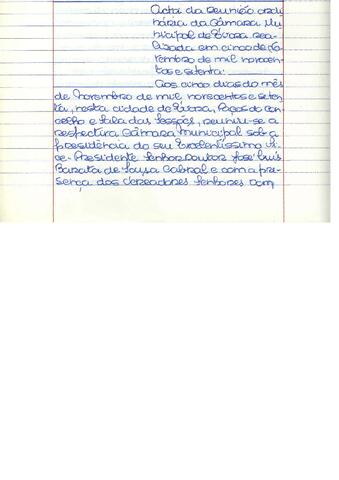 Acta da reunião ordi
nária da Câmara Mu
nicipal de Évora rea-
lizada em cinco de No
vembro de mil novecen
tos e setenta.
Aos cinco dias do mês
de Novembro de mil novecentos e seten
ta, nesta cidade de Évora, Paços do Con
celho e Sala das Sessões, reuniu-se a
respectiva Câmara Municipal sob a
presidência do seu Excelentíssimo Vi
ce-Presidente Senhor Doutor José Luís
Barata de Sousa Cabral e com a pre-
sença dos Vereadores Senhores Dom